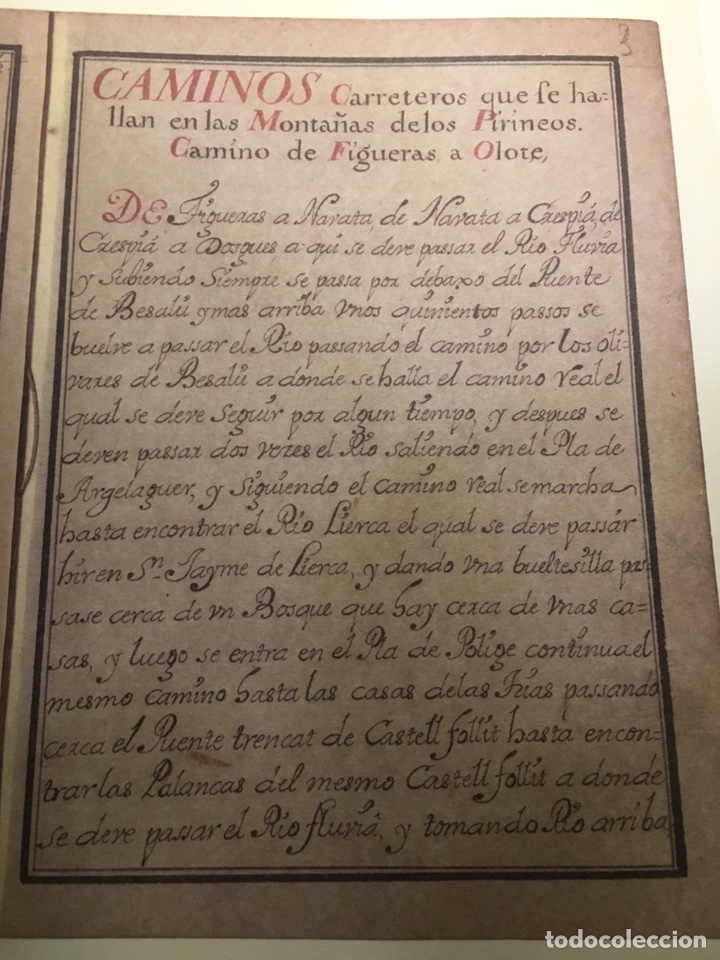 3
CAMINOS Carreteros que se ha=
llan en las Montañas delos Pirineos.
Camino de Figueras a Olote,
DE Figueras a Navata, de Navata a Crespiá, de
Crespiá a Dosques, a qui se deve passar el Rio Fluviá
y subiendo siempre se passa por debaxo del Puente
de Besalú y mas arriba vnos quinientos passos se
buelve a passar el Rio passando el camino por los oli-
vares de Besalú a donde se halla el camino real el
qual se deve seguir por algun tiempo, y despues se
deven passar dos vezes el Rio saliendo en el Pla de
Argelaguer, y siguiendo el camino real se marcha
hasta encontrar el Rio Lierca el qual se deve passár
hir en Sn. Jayme de Lierca, y dando vna bueltesilla pas
sase cerca de vn Bosque que hay cerca de vnas ca-
sas, y luego se entra en el Pla de Polige continua el
mesmo camino hasta las casas delas Frias passando
cerca el Puente trencat de Castell follit hasta encon-
trar las Palancas del mesmo Castell follit a donde
se deve passar el Rio fluviá, y tomando Rio arriba
todocoleccion